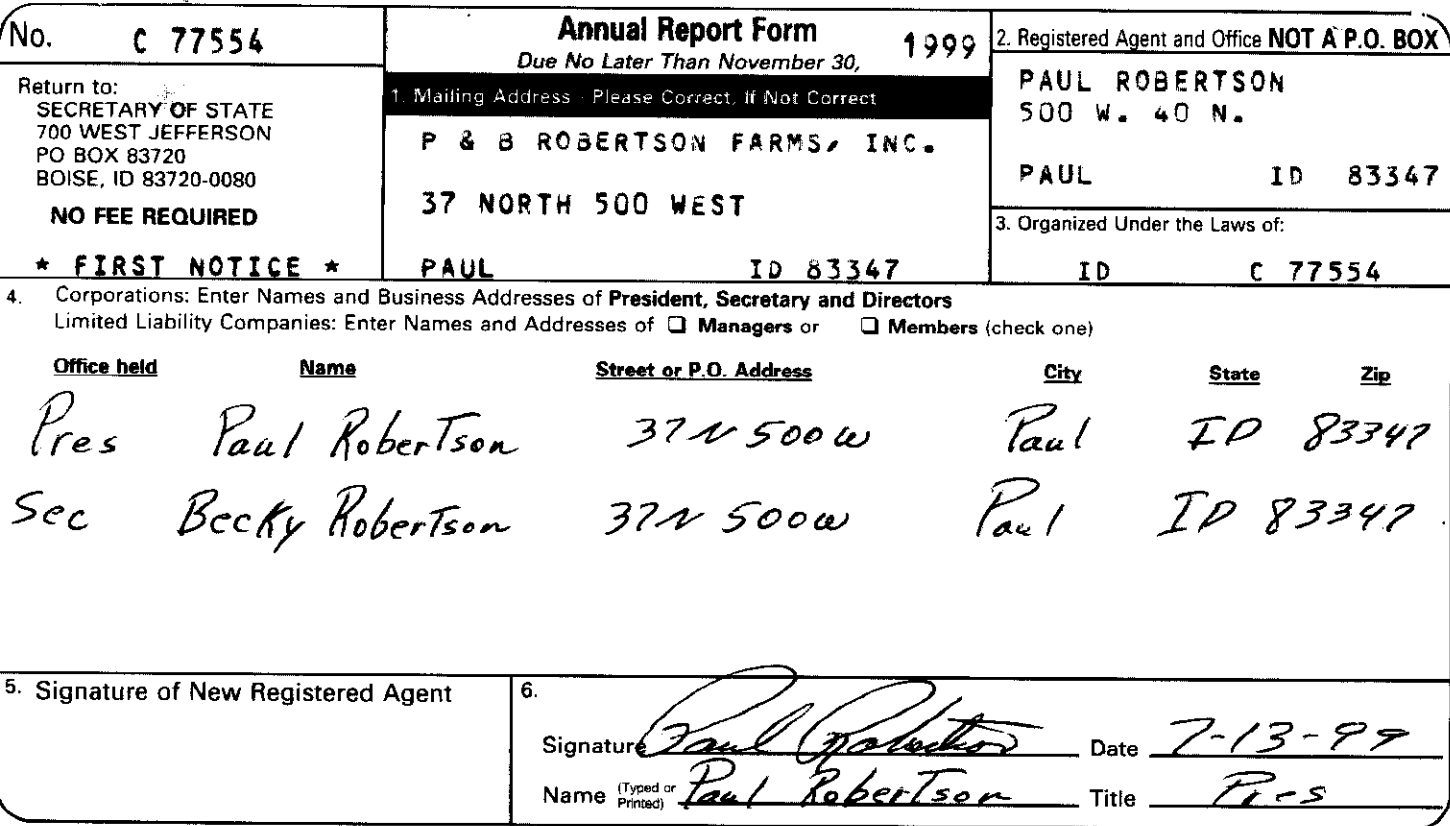 No. C 77554
Return to:
SECRETARY OF STATE
700 WEST JEFFERSON
PO BOX 83720
BOISE, ID 83720-0080
NO FEE REQUIRED
* FIRST NOTICE *
Annual Report Form 1999
Due No Later Than November 30,
1. Mailing Address - Please Correct, If Not Correct
P & B ROBERTSON FARMS, INC.
37 NORTH 500 WEST
PAUL ID 83347
2. Registered Agent and Office NOT A P.O. BOX
PAUL ROBERTSON
500 W. 40 N.
PAUL ID 83347
3. Organized Under the Laws of:
ID C 77554
4. Corporations: Enter Names and Business Addresses of President, Secretary and Directors
Limited Liability Companies: Enter Names and Addresses of ❑ Managers or ❑ Members (check one)
Office held Name Street or P.O. Address City State Zip
Pres Paul Robertson 37 N 500 W Paul ID 83347
Sec Becky Robertson 37 N 500 W Paul ID 83347
5. Signature of New Registered Agent
6.
Signature Paul Robertson Date 7-13-99
Name (Typed or Printed) Paul Robertson Title Pres